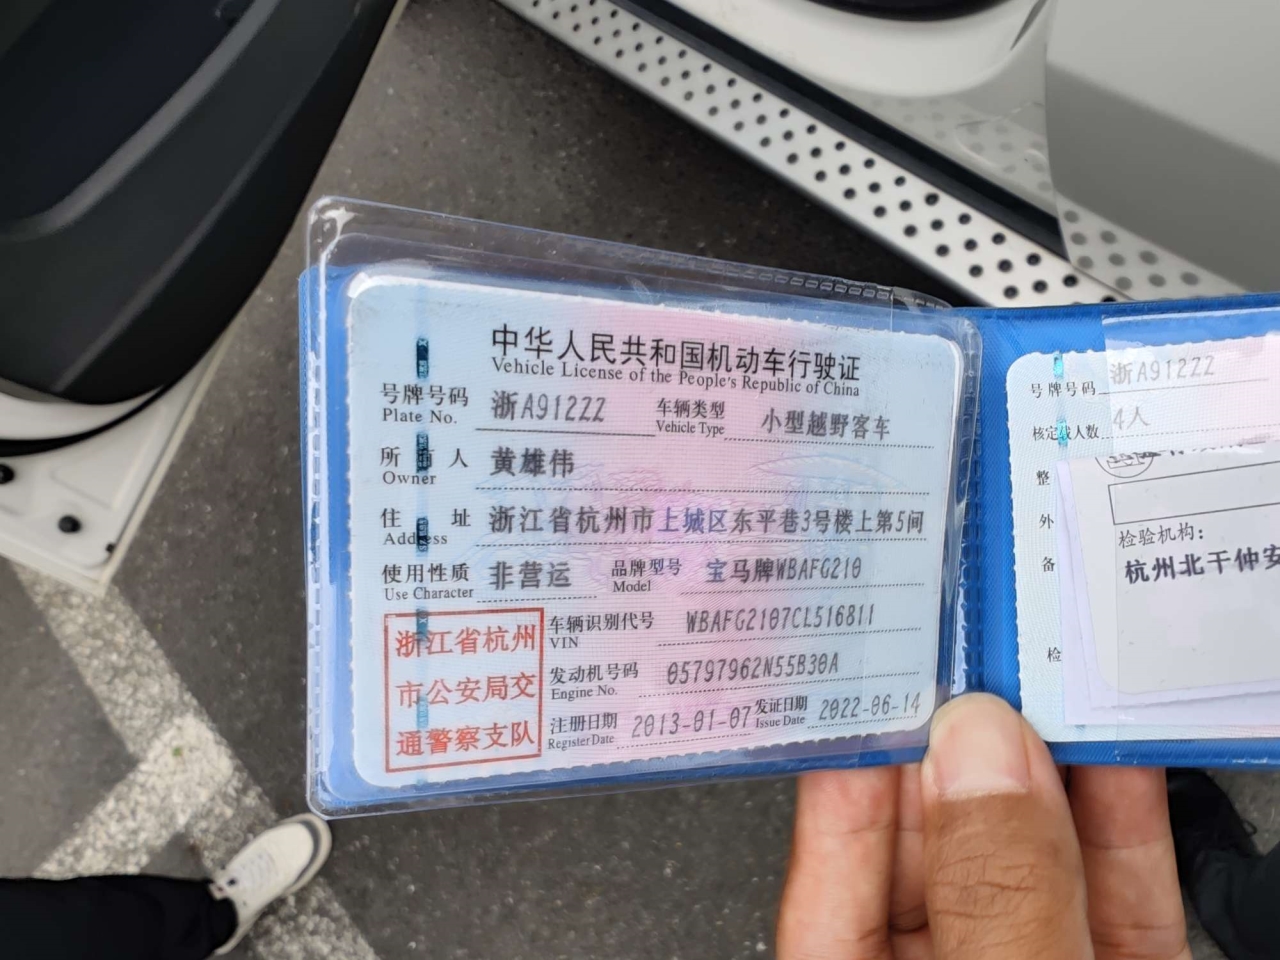 中华人民共和国机动车行驶证
Vehicle License of the People's Republic of China
号牌号码 浙A912ZZ 车辆类型 小型越野客车
Plate No. Vehicle Type
所 人 黄雄伟
Owner
住 址 浙江省杭州市上城区东平巷3号楼上第5间
Address
使用性质 非营运 品牌型号 宝马牌WBAFG210
Use Character Model
浙江省杭州
市公安局交
通警察支队
车辆识别代号 WBAFG2107CL516811
VIN
发动机号码 05797962N55B30A
Engine No.
注册日期 2013-01-07 发证日期 2022-06-14
Register Date Issue Date
号牌号码 浙A912ZZ
核定载人数 4人
整
外
备
检
检验机构：
杭州北干仲安